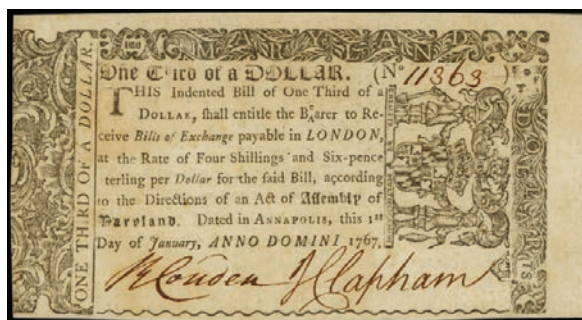 MARYLAND
One Third of a DOLLAR. (No 11363)
THIS Indented Bill of One Third of a
DOLLAR, shall entitle the Bearer to Re-
ceive Bills of Exchange payable in LONDON,
at the Rate of Four Shillings and Six-pence
terling per Dollar for the said Bill, according
to the Directions of an Act of Assembly of
Maryland. Dated in ANNAPOLIS, this 1st
Day of January, ANNO DOMINI 1767.
R Couden J Clapham
ONE THIRD OF A DOLLAR.